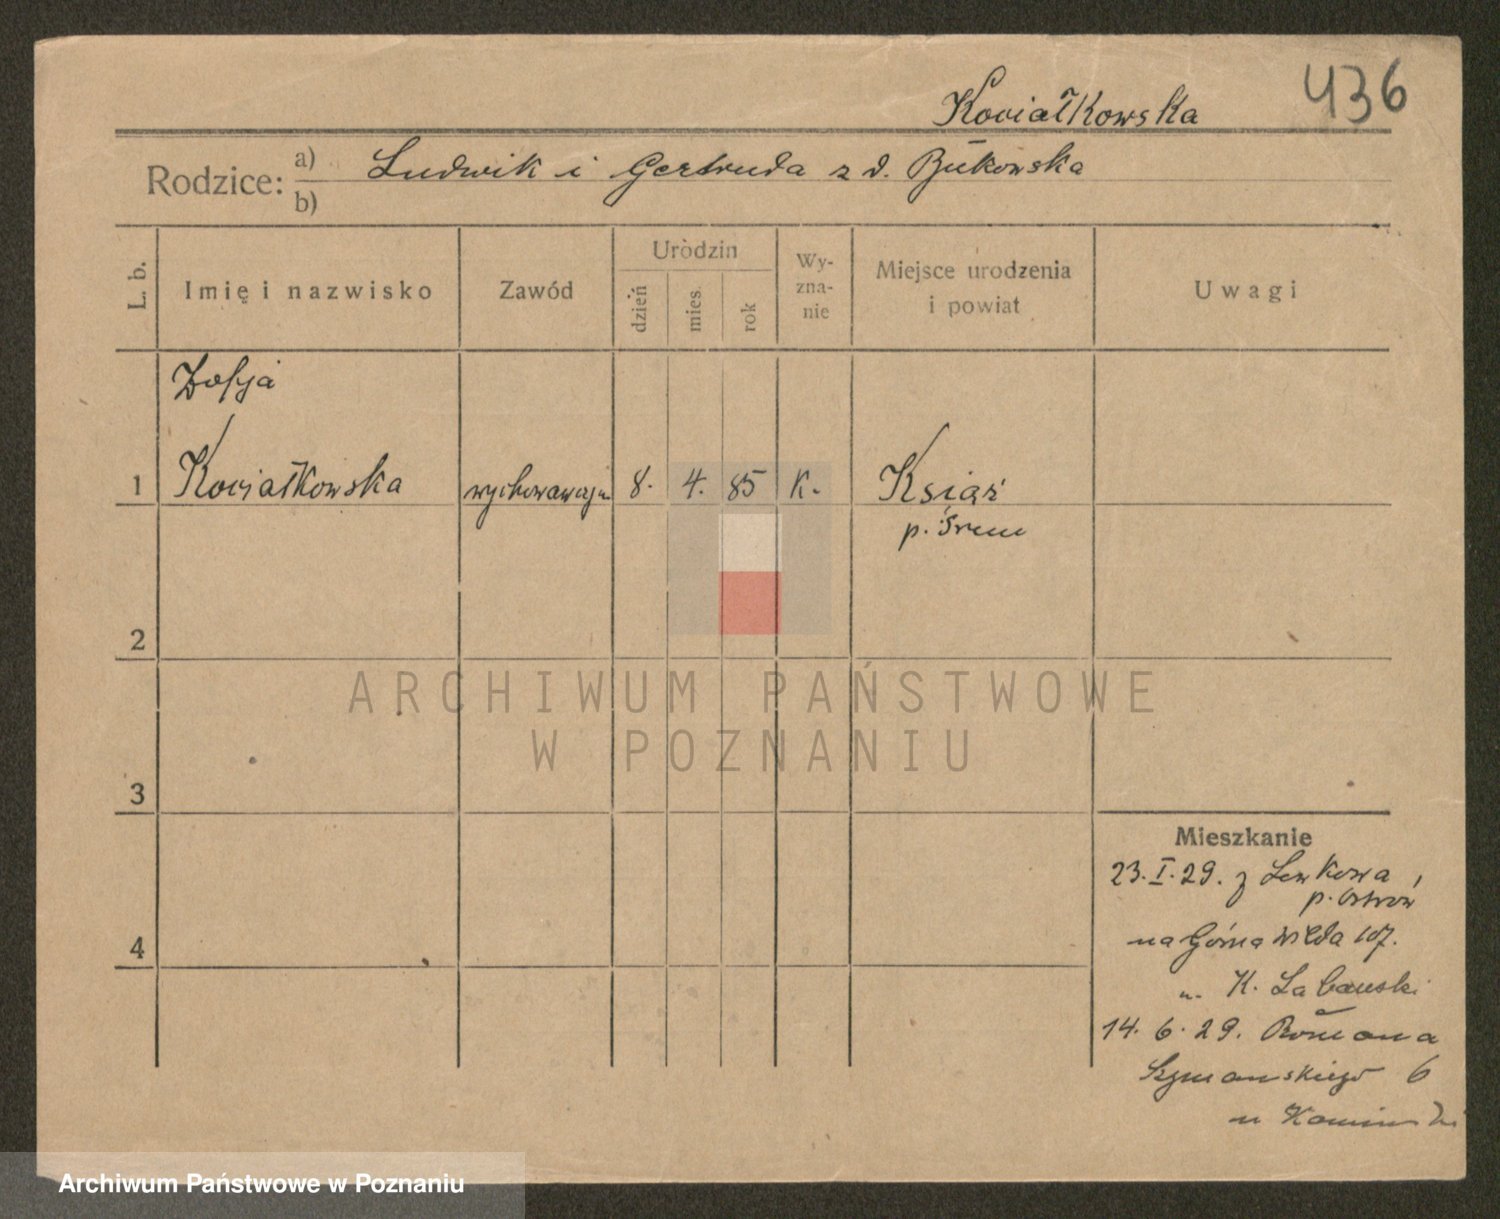 436
Kociałkowska
Rodzice: a) Ludwik i Gertruda z d. Bukowska
b)
L. b.
Imię i nazwisko
Zawód
Urodzin
dzień
mies.
rok
Wy-
zna-
nie
Miejsce urodzenia
i powiat
Uwagi
Zofja
1 Kociałkowska wychowawczyni 8. 4. 85 K. Książ
p. Śrem
2
3
4
Mieszkanie
23.I.29. z Lewkowa,
p. Ostrów
na Górna Wilda 107.
u. K. Labauski
14. 6. 29. Romana
Szymańskiego 6
u
ARCHIWUM PAŃSTWOWE
W POZNANIU
Archiwum Państwowe w Poznaniu